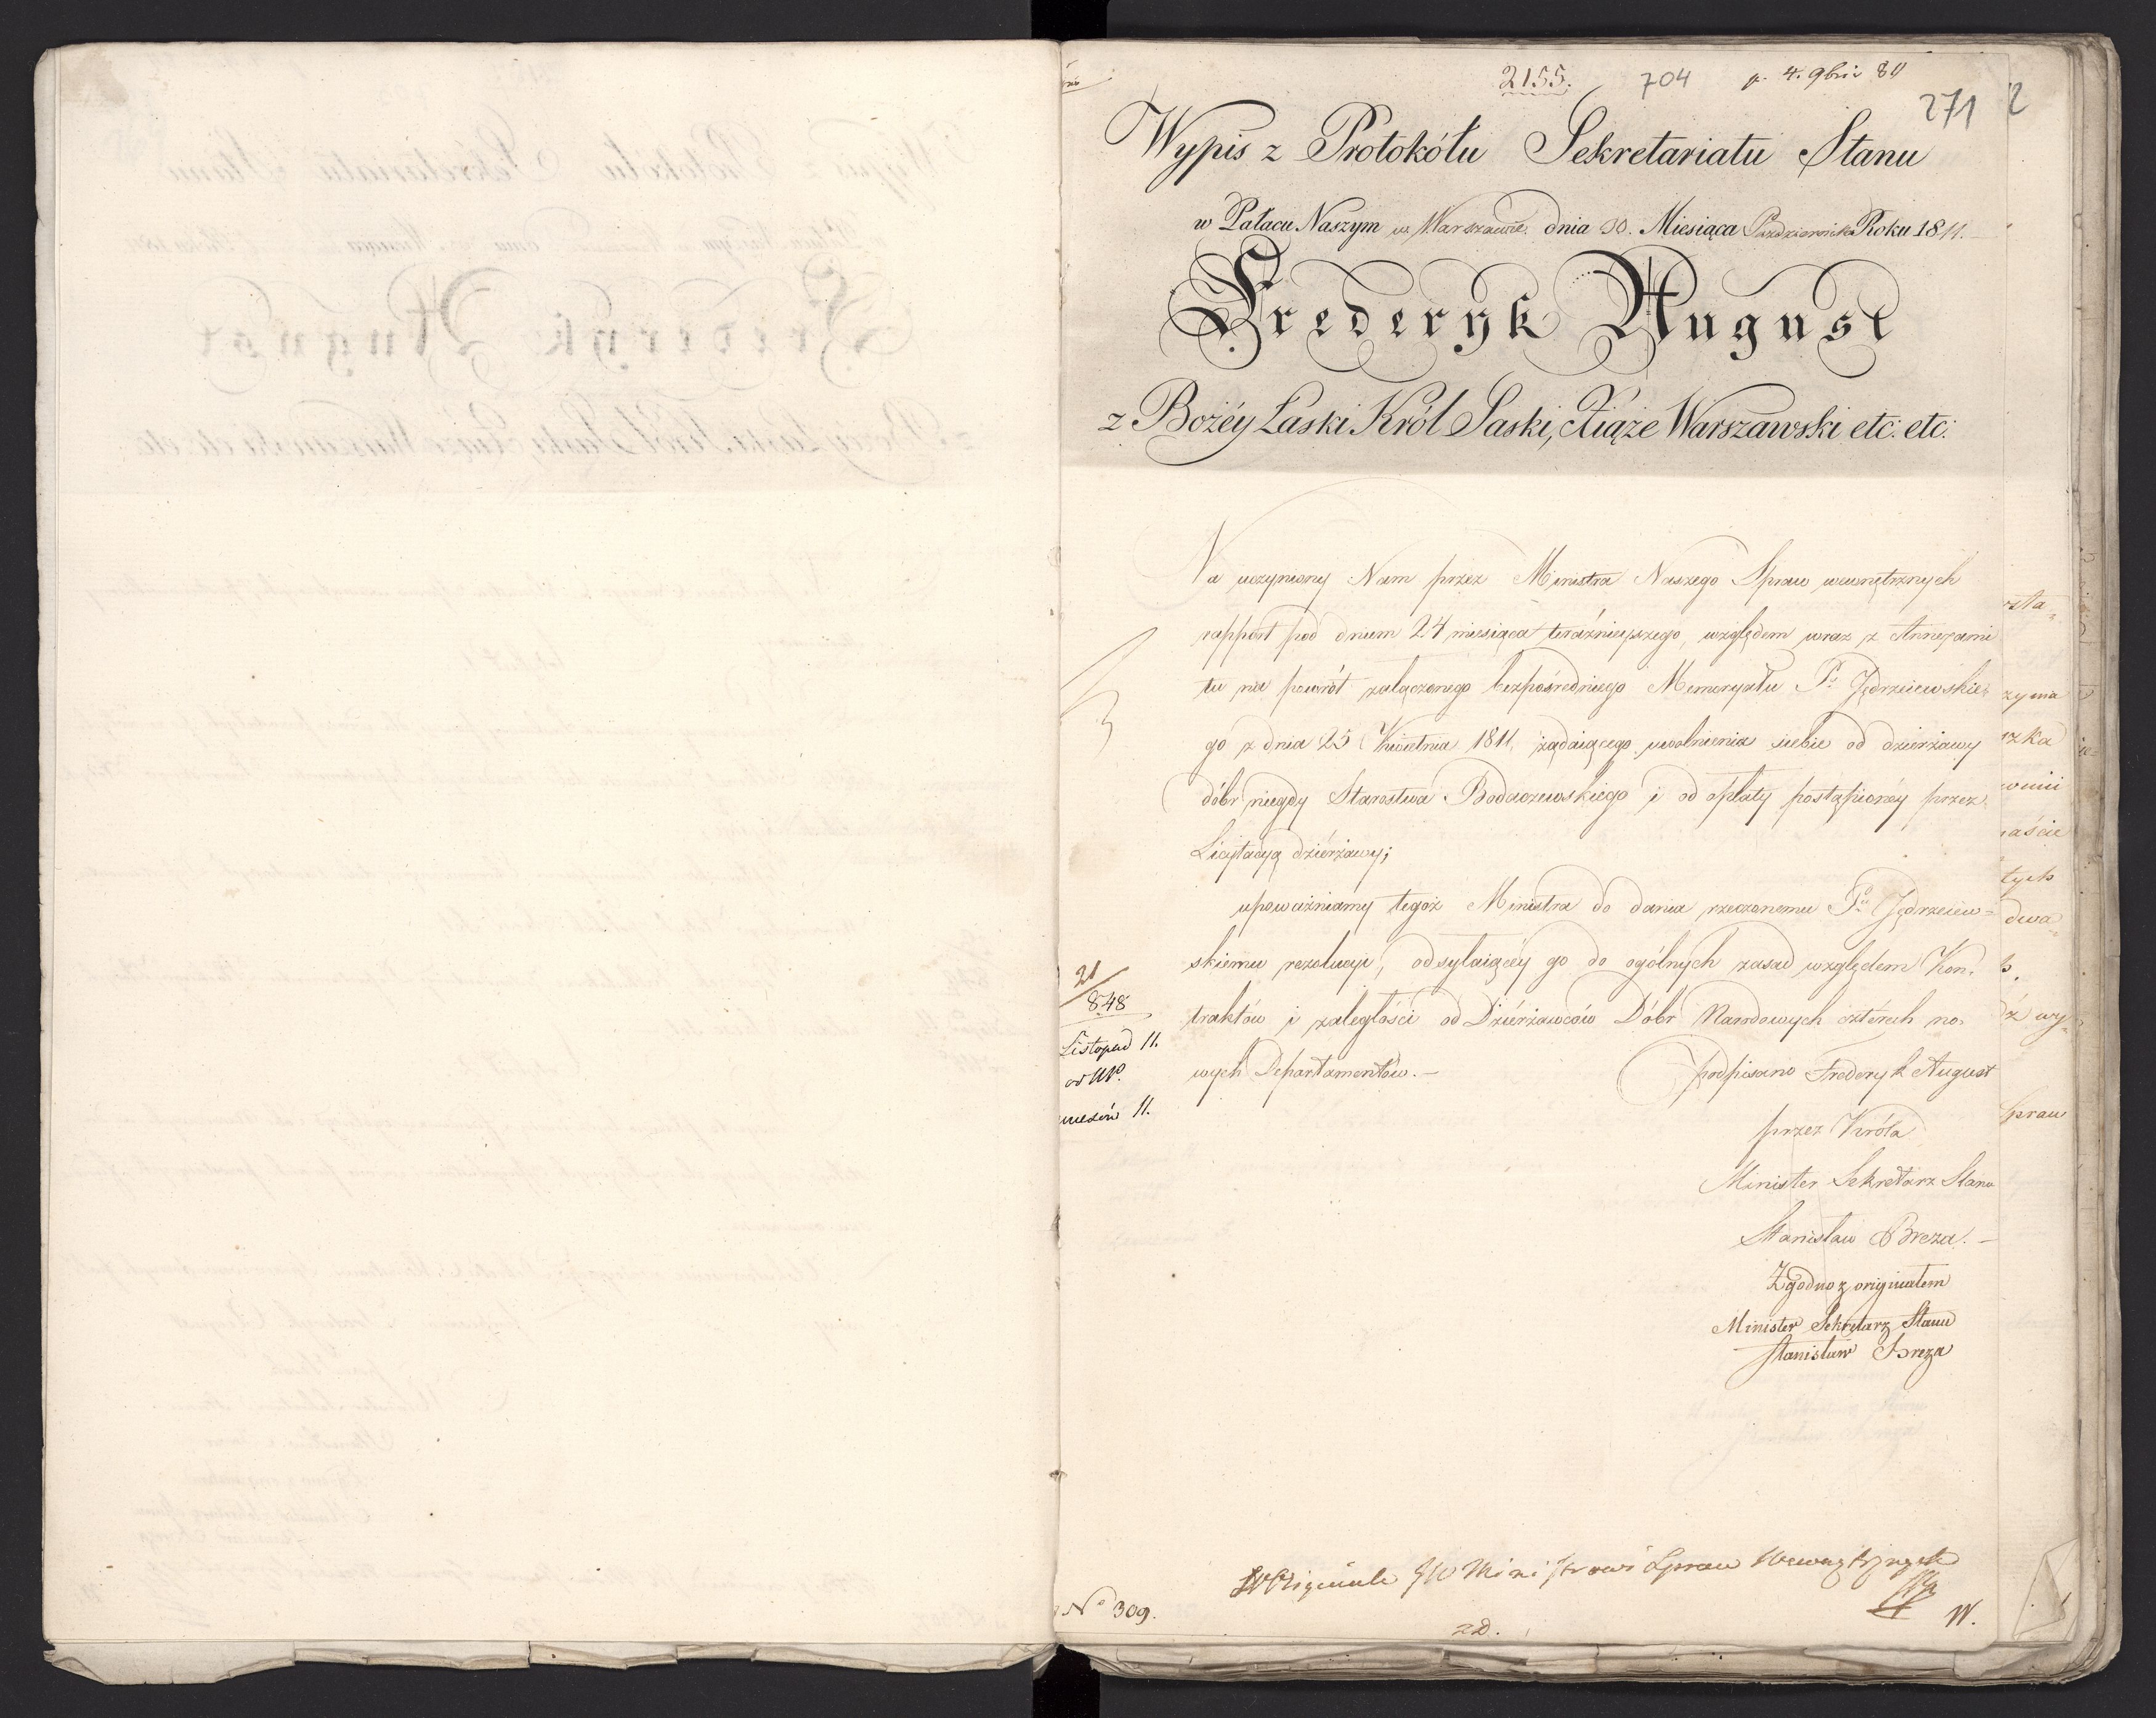 2155. 704 p. 4. 9bris 811
271
Wypis z Protokółu Sekretariatu Stanu
w Pałacu Naszym w Warszawie dnia 30. Miesiąca Października Roku 1811.
Frederyk August
z Bożéy Łaski Król Saski, Xiąże Warszawski etc. etc.
Na uczyniony Nam przez Ministra Naszego Spraw wewnętrznych
rapport pod dniem 24 miesiąca teraźnieyszego, względem wraz z Annexami
tu na powrót załączonego bezpośredniego Memoryału P. Jędrzeiewskie-
go z dnia 25 Kwietnia 1811, żądaiącego uwolnienia siebie od dzierżawy
dóbr niegdy Starostwa Bodaczewskiego i od opłaty postąpionéy przez
Licytacyą dzierżawy;
upoważniamy tegoż Ministra do dania rzeczonemu P. Jędrzeiew=
skiemu rezolucyi, odsyłaiącéy go do ogólnych zasad względem Kon-
traktów i zaległości od Dzierżawców Dóbr Narodowych cztérech no-
wych Departamentów.—
podpisano Frederyk August
przez Króla
Minister Sekretarz Stanu
Stanisław Breza.—
Zgodno z originałem
Minister Sekretarz Stanu
Stanisław Breza
21
848
Listopad 11.
11.
W Originale JW Ministrowi Spraw Wewnętrznych
No 309.
W.